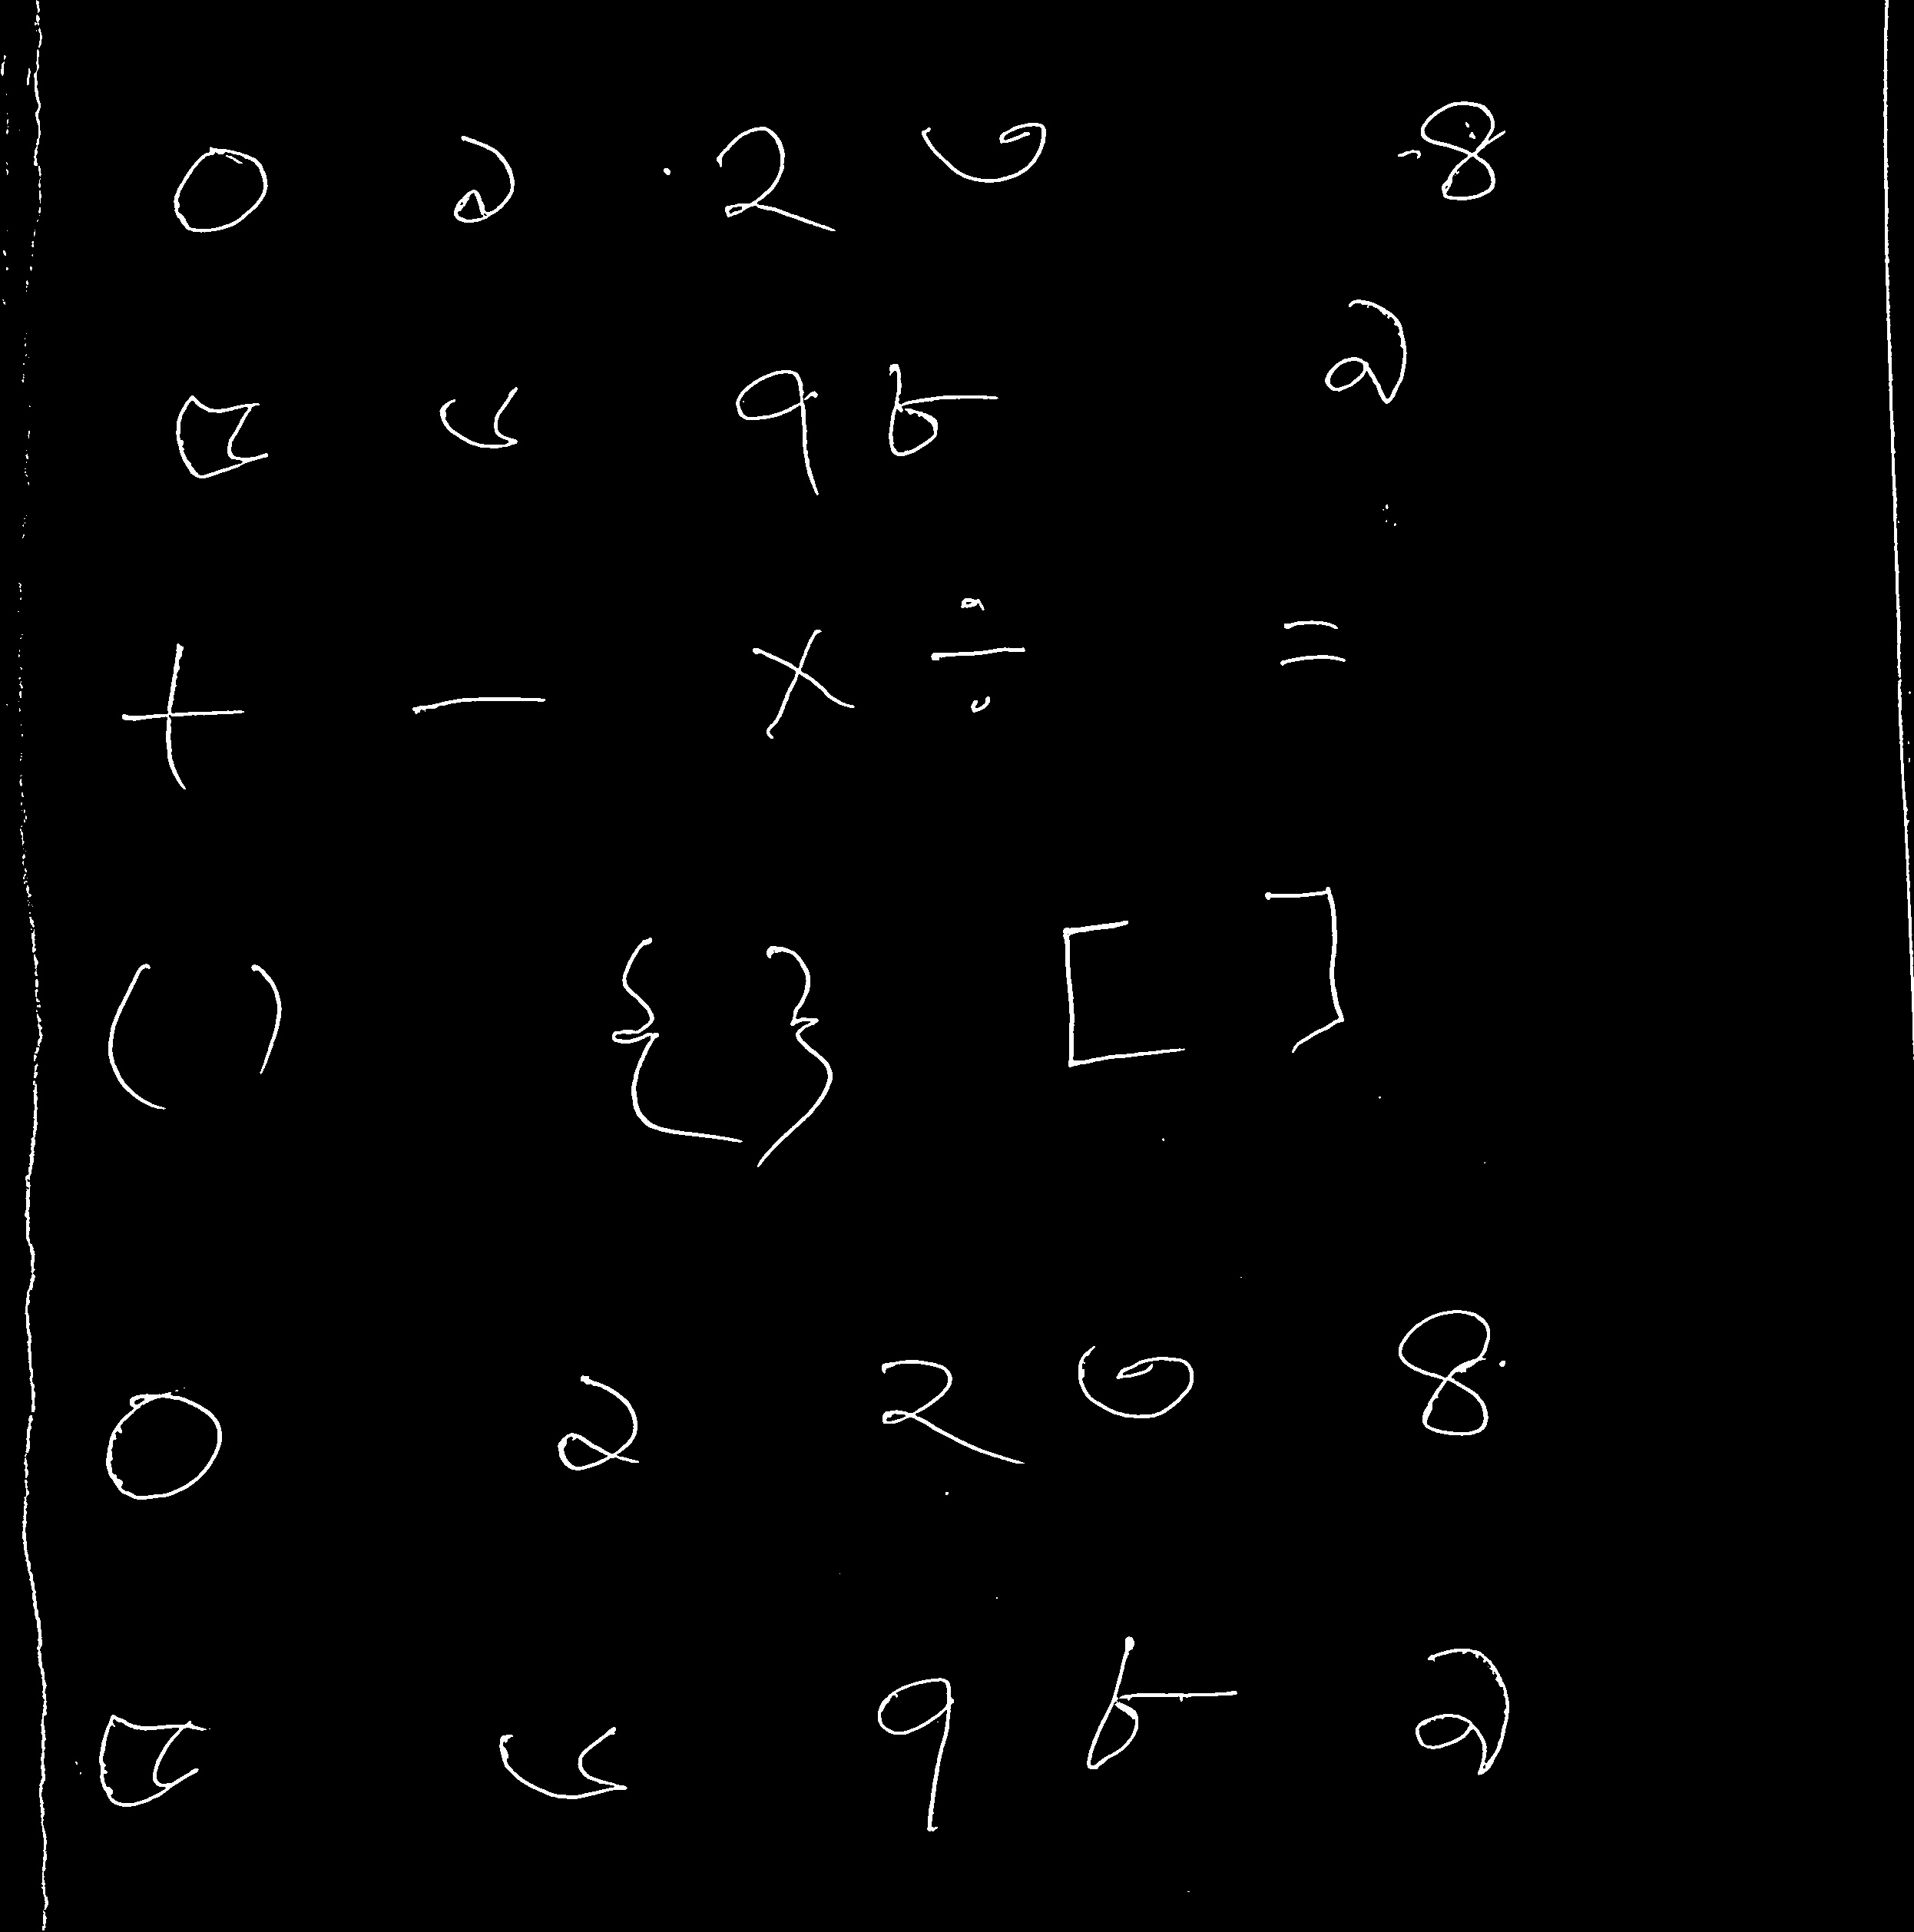 ০ ১ ২ ৩ ৪
৫ ৬ ৭ ৮ ৯
+ - × ÷ =
( ) { } [ ]
০ ১ ২ ৩ ৪
৫ ৬ ৭ ৮ ৯